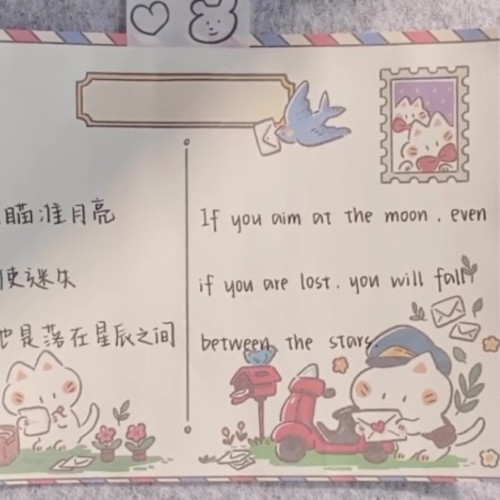 瞄准月亮
使迷失
也是落在星辰之间
If you aim at the moon, even
if you are lost, you will fall
between the stars.